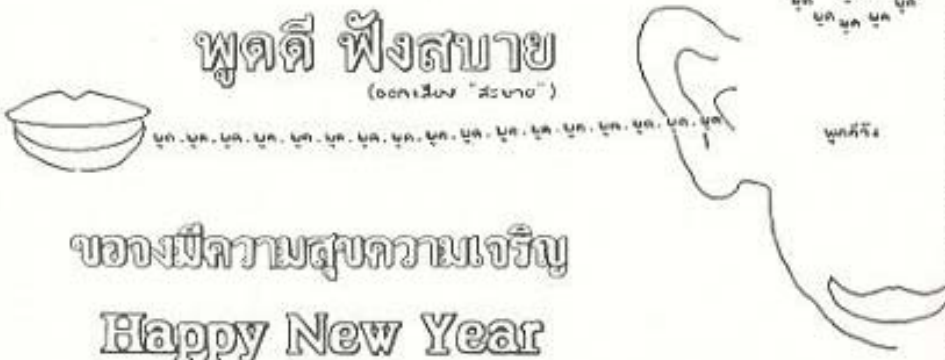 พูด พูด
พูด พูด พูด
พูดดี ฟังสบาย
(ออกเสียง "สะบาย")
พูด. พูด. พูด. พูด. พูด. พูด. พูด. พูด. พูด. พูด. พูด. พูด. พูด. พูด. พูด. พูด. พูด
พูดดีจัง
ขอจงมีความสุขความเจริญ
Happy New Year